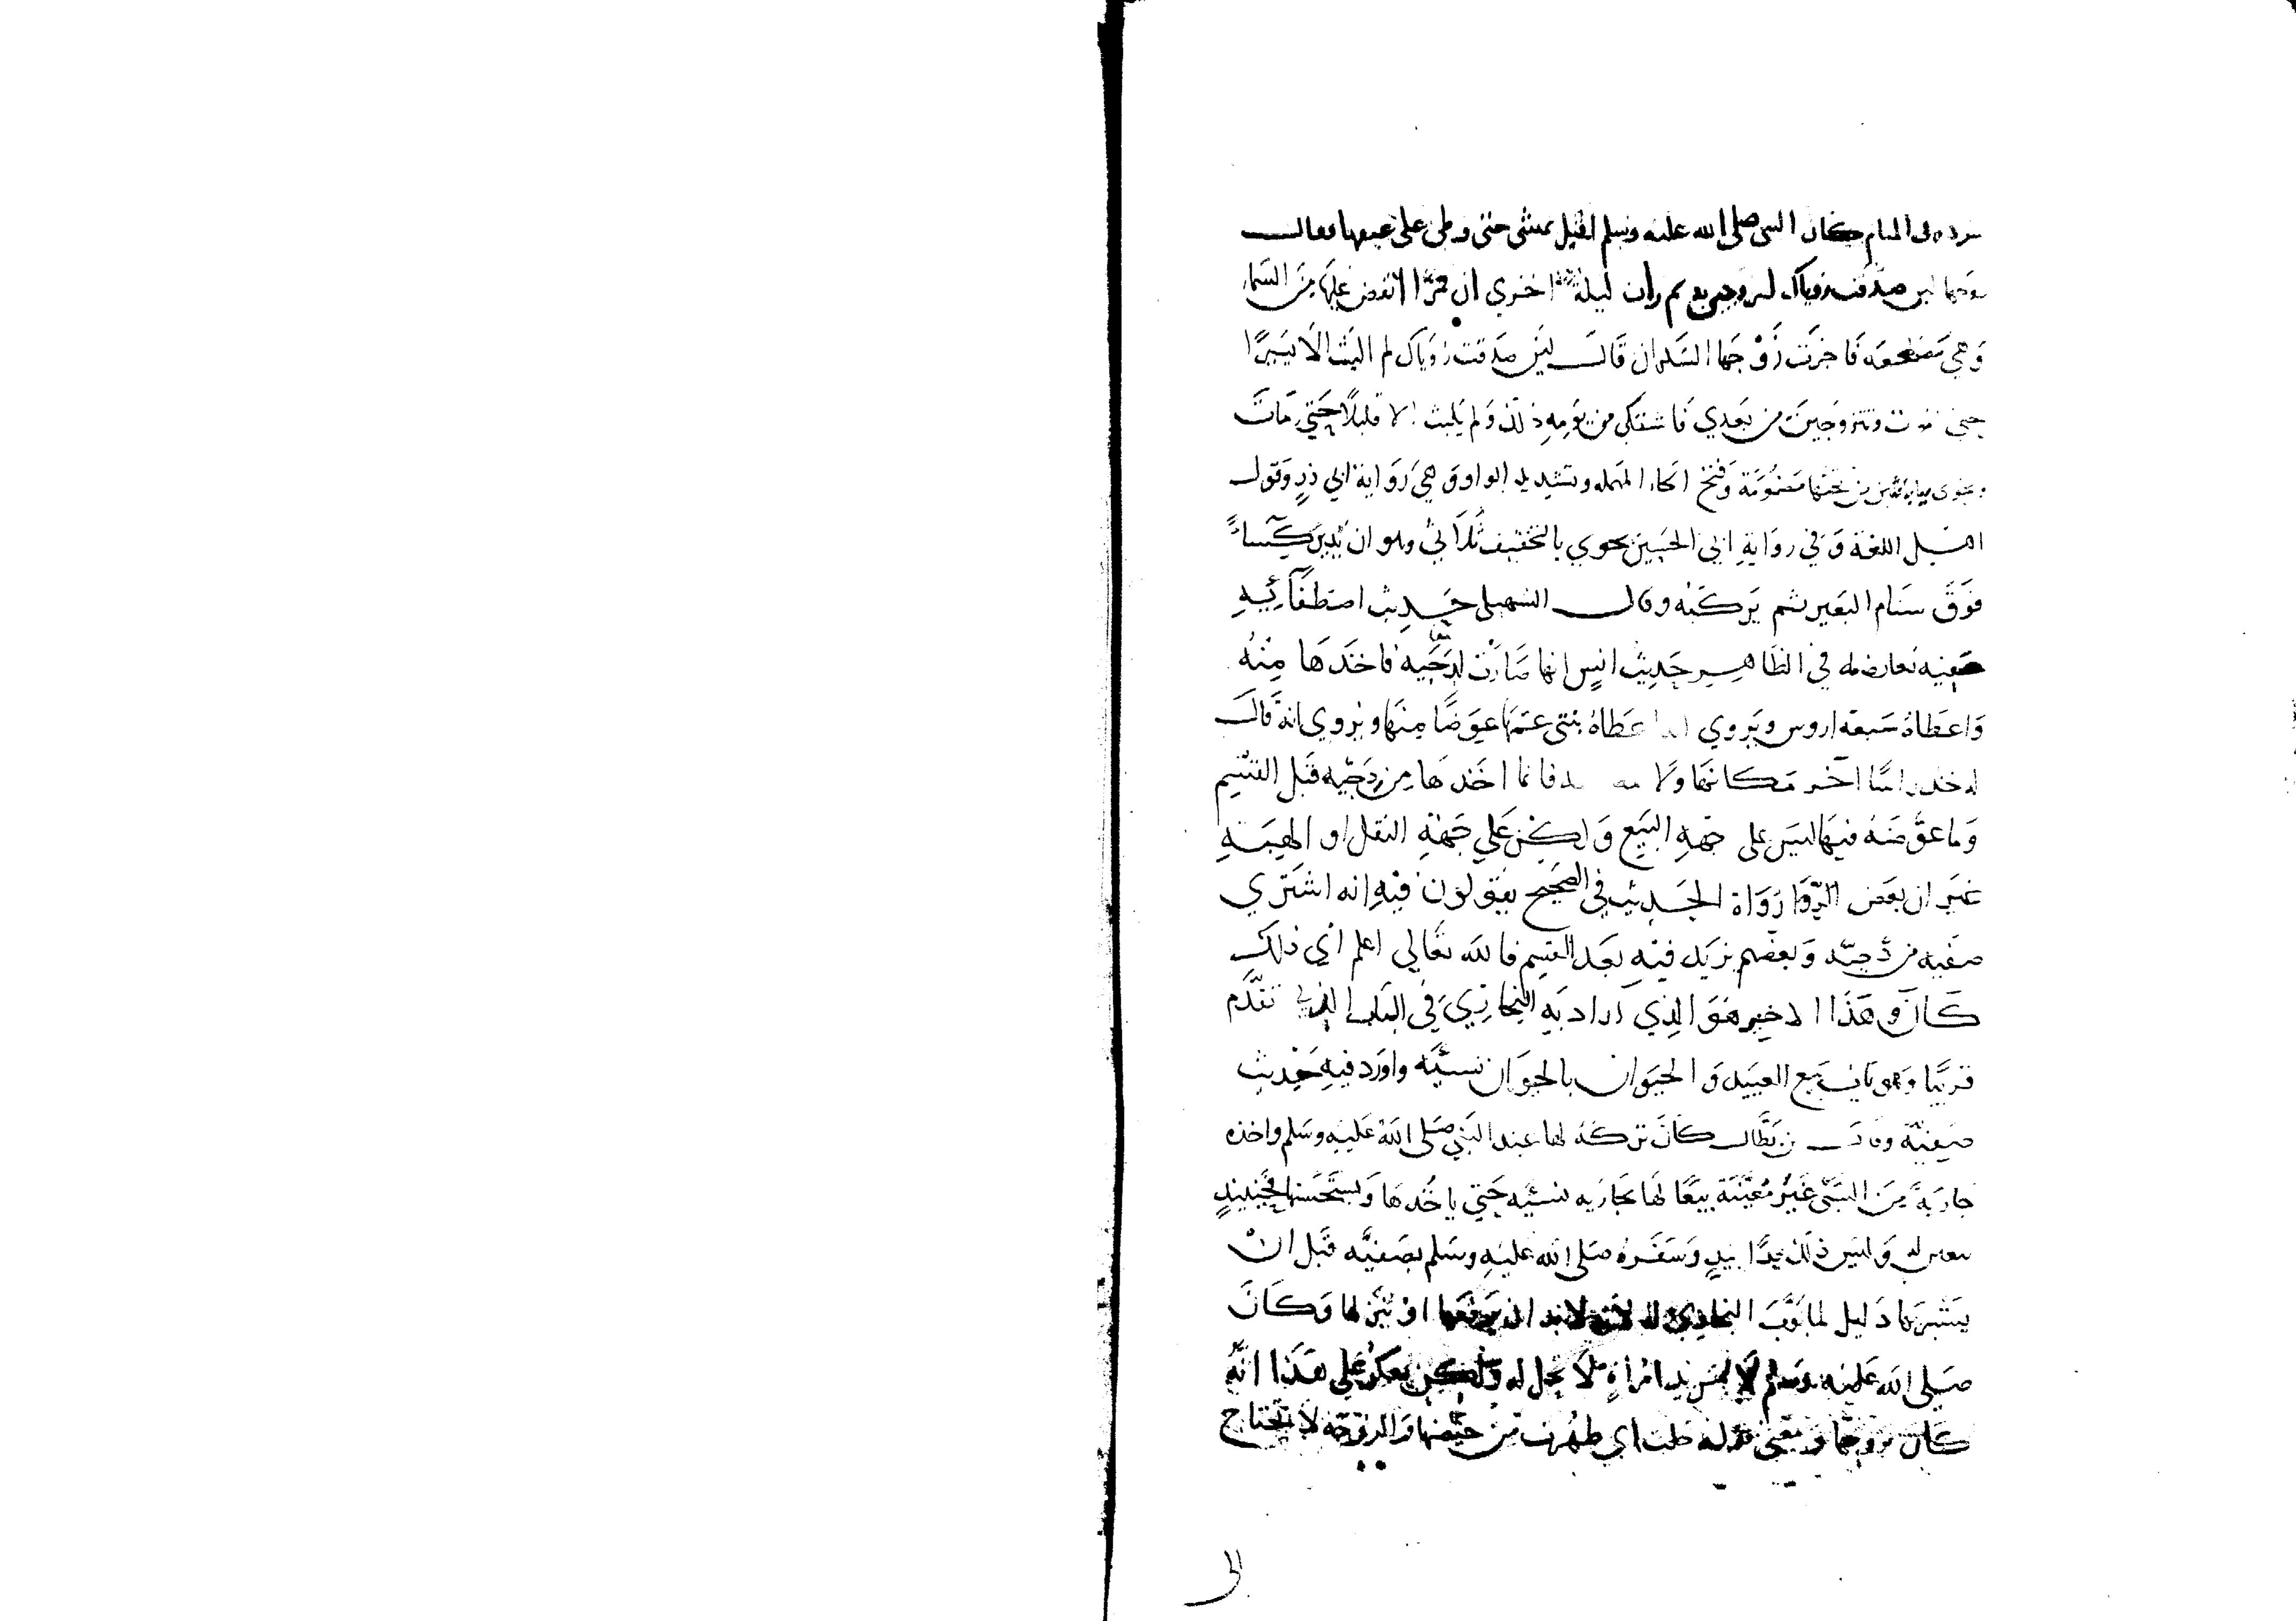 في المنام كان النبي صلى الله عليه وسلم اقبل يمشي حتى وطي على عنقها فقال
زوجها لين صدقت روياك لتزوجين به ثم رات ليلة اخري ان قمرًا انقض عليها من السما
وهي مضطجعه فاخبرت زوجها السكران قال لين صدقت روياك لم البث الا يسيرًا
حتى اموت وتتزوجين من بعدي فاشتكى من يومه ذلك ولم يلبث الا قليلًا حتي مات
مضمومة وفتح الحاء المهمله وتشديد الواو وهي رواية ابي ذر وقول
اهل اللغة وفي رواية ابي الحسين يحوي بالتخفيف ثلاثي وهو ان يدير كساءً
فوق سنام البعير ثم يركبه وقال السهيلي حديث اصطفائيه
صفيه يعارضه في الظاهر حديث انس انها صارت لدحيه فاخدها منه
واعطاه سبعه اروس ويروي اعطاه بنتي عمها عوضًا منها ويروي انه قال
له خد راسًا آخر مكانها ولا فانما اخدها من دحيه قبل القسيم
وما عوضه فيها ليس على جهه البيع ولكن علي جهة النفل او الهبة
غير ان بعض الروا رواة الحديث في الصحيح يقولون فيه انه اشتري
صفيه من دحيه وبعضهم يزيد فيه بعد القسيم فالله تعالي اعلم اي ذلك
كان وهذا الاخير هو الذي اراد به البخاري في الباب الذي تقدم
قريبًا وهو باب بيع العبيد والحيوان بالحيوان نسئيه واورد فيه حديث
صفية وقال بن بطال كان تركه لها عند النبي صلى الله عليه وسلم واخذه
جاريةً من السبي غير معينة بيعًا لها بجاريه نسئيه حتي ياخدها ويستحسنها فحينيذ
وليس ذلك يدًا بيدٍ وسفره صلى الله عليه وسلم بصفيه قبل ان
يستبرها دليل لما بوب البخاري لانه لابد ان يرفعها او ينزلها وكان
صلى الله عليه وسلم لا يمس يد امراةٍ لا تحل له ولكن يعكر علي هذا انه
كان تزوجها ومعني قوله حلت اي طهرت من حيضها والزوجة لا تحتاج
الى